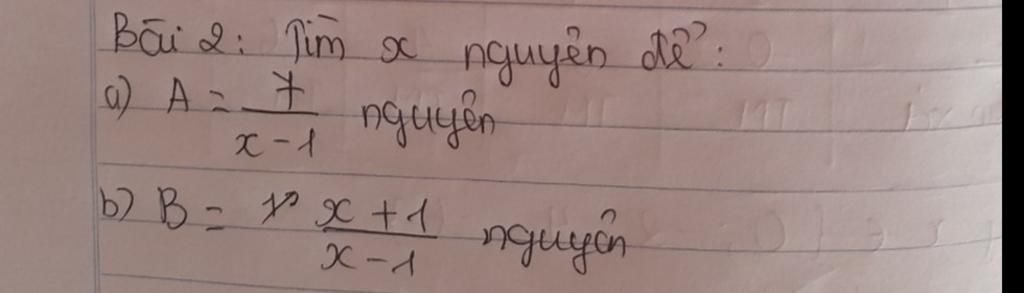 Bài 2: Tìm x nguyên để:
a) A = 7/(x-1) nguyên
b) B = (x+1)/(x-1) nguyên